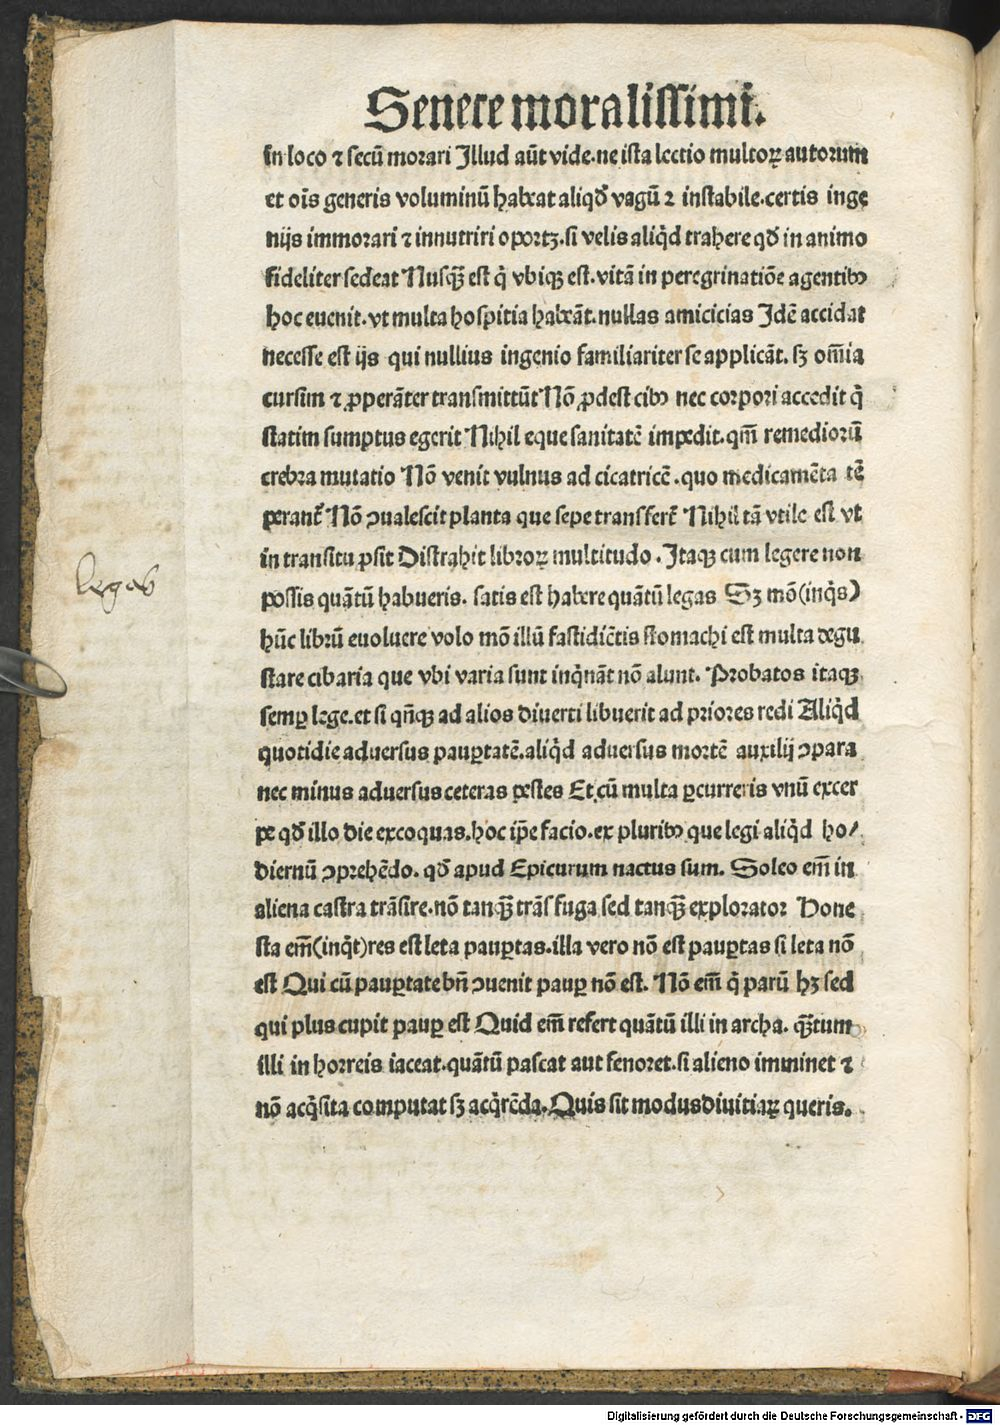 Senece moralissimi.
in loco ⁊ secū morari Illud aūt vide·ne ista lectio multoꝝ autorum
et oīs generis voluminū habeat aliqđ vagū ⁊ instabile·certis inge
nijs immorari ⁊ innutriri oportꝫ·si velis aliq̇d trahere qđ in animo
fideliter sedeat Nusq̄ȝ est q̇ vbiqꝫ est·vitā in peregrinatiōe agentibꝰ
hoc euenit·vt multa hospitia habeāt·nullas amicicias Idē accidat
necesse est ijs qui nullius ingenio familiariter se applicāt. sꝫ om̄ia
cursim ⁊ ꝓperāter transmittūt Nō ꝓdest cibꝰ nec corpori accedit q̇
statim sumptus egerit Nihil eque sanitatē impedit·qm̄ remediorū
crebra mutatio Nō venit vulnus ad cicatricē·quo medicamēta tē
perant̄ Nō ꝯualescit planta que sepe transfert̄ Nihil tā vtile est vt
in transitu ꝓsit Distrahit libroꝝ multitudo. Itaqꝫ cum legere non
possis quātū habueris. satis est habere quātū legas Sꝫ mō(inq̇s)
hūc librū euoluere volo mō illū fastidiētis stomachi est multa degu
stare cibaria que vbi varia sunt inq̇nāt nō alunt. Probatos itaqꝫ
semꝑ lege·et si qn̄qꝫ ad alios diuerti libuerit ad priores redi Aliq̇d
quotidie aduersus pauꝑtatē·aliq̇d aduersus mortē auxilij ꝯpara
nec minus aduersus ceteras pestes Et cū multa ꝑcurreris vnū excer
pe qđ illo die excoquas·hoc ip̄e facio·ex pluribꝰ que legi aliq̇d ho/
diernū ꝯprehēdo. qđ apud Epicurum nactus sum. Soleo em̄ in
aliena castra trāsire·nō tanq̄ȝ trāsfuga sed tanq̄ȝ explorator Hone
sta em̄(inq̇t)res est leta pauꝑtas·illa vero nō est pauꝑtas si leta nō
est Qui cū pauꝑtate bn̄ ꝯuenit pauꝑ nō est. Nō em̄ q̇ parū hꝫ sed
qui plus cupit pauꝑ est Quid em̄ refert quātū illi in archa. q̄ȝtum
illi in horreis iaceat·quātū pascat aut fenoret·si alieno imminet ⁊
nō acq̇sita computat sꝫ acq̇rēda·Quis sit modus diuitiaꝝ queris.
legas
Digitalisierung gefördert durch die Deutsche Forschungsgemeinschaft - DFG